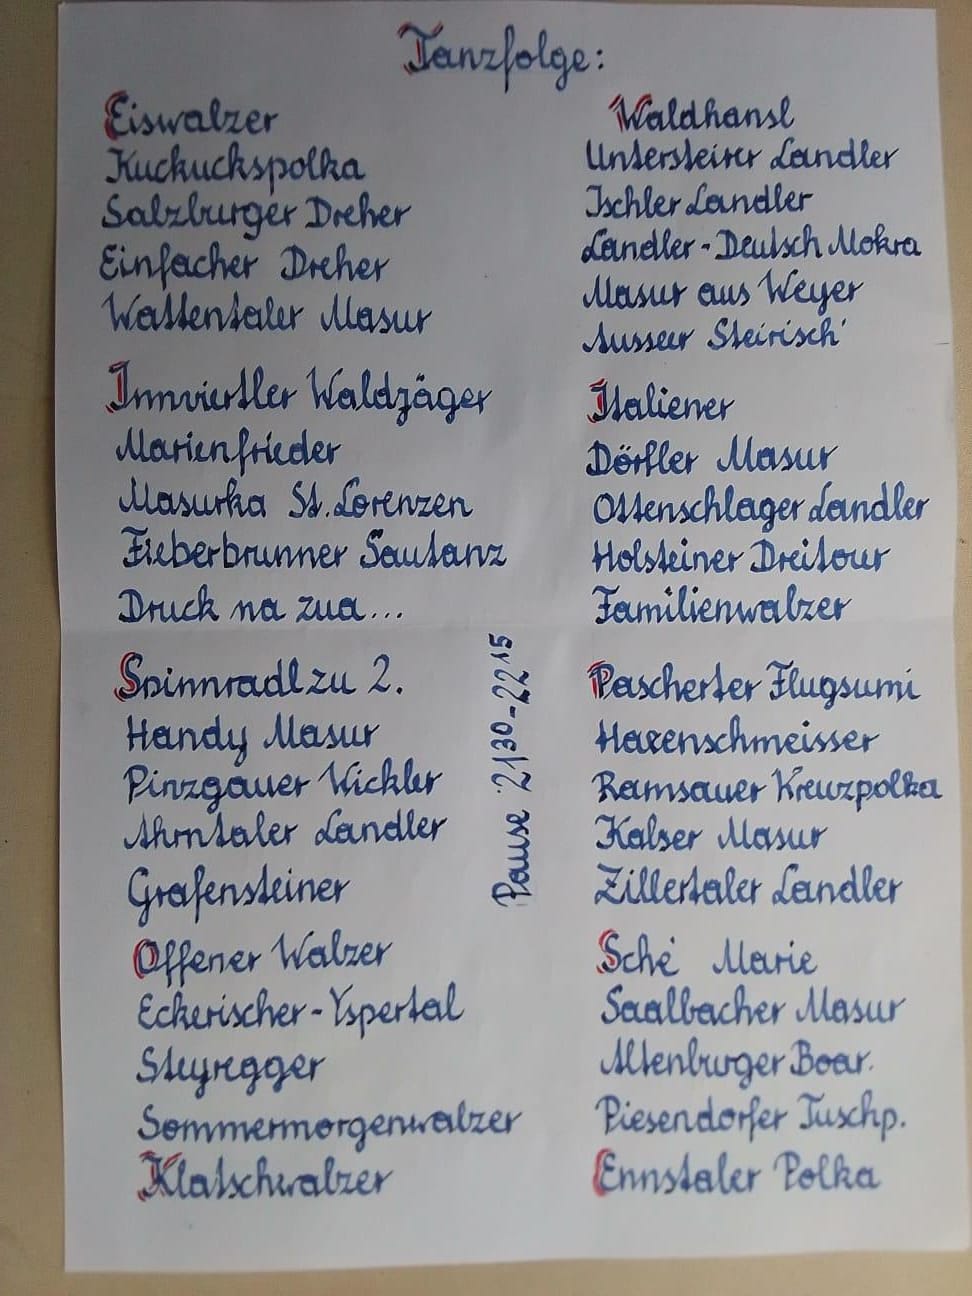 Tanzfolge:
Eiswalzer
Kuckuckspolka
Salzburger Dreher
Einfacher Dreher
Wattentaler Masur
Innviertler Waldjäger
Marienfrieder
Masurka St. Lorenzen
Fieberbrunner Sautanz
Druck na zua...
Spinnradl zu 2.
Handy Masur
Pinzgauer Wickler
Ahrntaler Landler
Grafensteiner
Offener Walzer
Eckerischer-Yspertal
Steyregger
Sommermorgenwalzer
Klatschwalzer
Pause 21³⁰-22¹⁵
Waldhansl
Untersteirer Landler
Ischler Landler
Landler-Deutsch Mokra
Masur aus Weyer
Ausseer Steirisch'
Italiener
Dörfler Masur
Ottenschlager Landler
Holsteiner Dreitour
Familienwalzer
Pascherter Flugsumi
Haxenschmeisser
Ramsauer Kreuzpolka
Kalser Masur
Zillertaler Landler
Sche' Marie
Saalbacher Masur
Altenburger Boar.
Piesendorfer Tuschp.
Ennstaler Polka